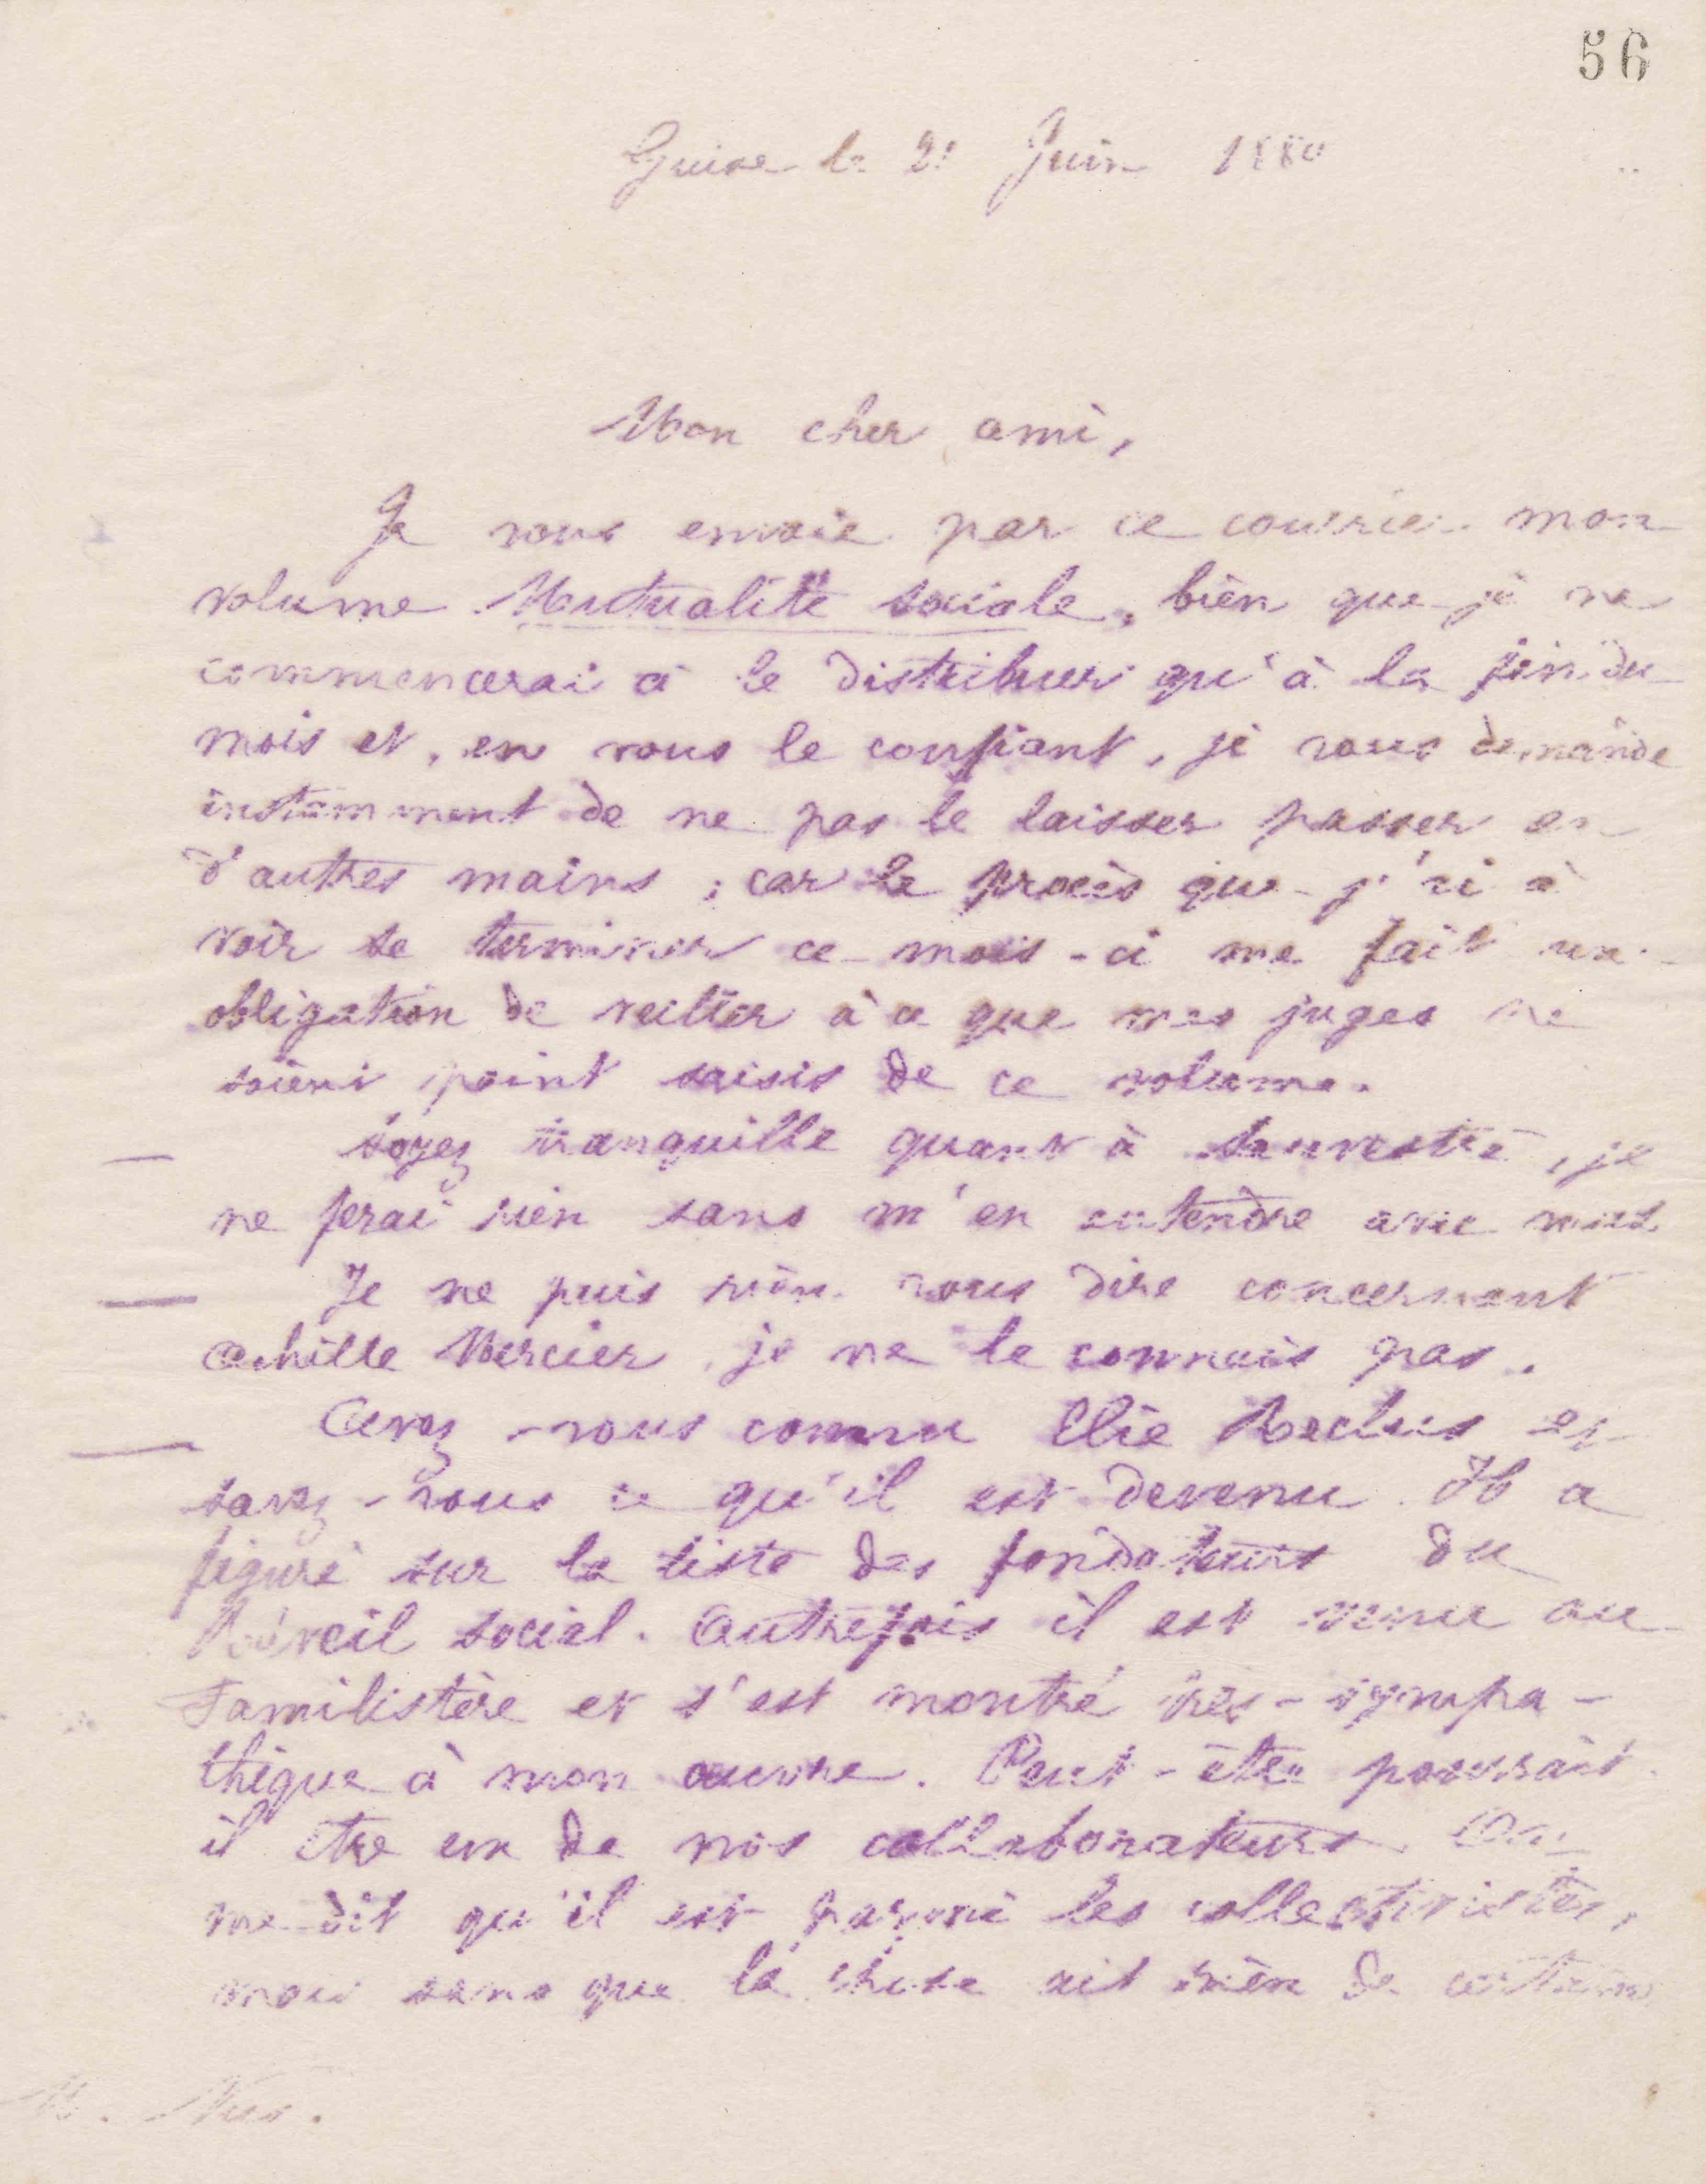 56
Guise le 21 Juin 1880
Mon cher ami,
Je vous envoie par ce courrier mon
volume Mutualité sociale, bien que je ne
commencerai à le distribuer qu'à la fin du
mois et, en vous le confiant, je vous demande
instamment de ne pas le laisser passer en
d'autres mains ; car le procès que j'ai à
voir se terminer ce mois-ci me fait une
obligation de veiller à ce que mes juges ne
soient point saisis de ce volume.
Soyez tranquille quant à Sauvestre, je
ne ferai rien sans m'en entendre avec vous.
Je ne puis rien vous dire concernant
Achille Mercier, je ne le connais pas.
Avez-vous connu Elie Reclus et
savez-vous ce qu'il est devenu. Il a
figuré sur la liste des fondateurs du
Réveil social. Autrefois il est venu au
Familistère et s'est montré très-sympa-
thique à mon œuvre. Peut-être pourrait
il être un de nos collaborateurs. On
me dit qu'il est parmi les collectivistes,
mais sans que la chose ait rien de certain
M. Nus.